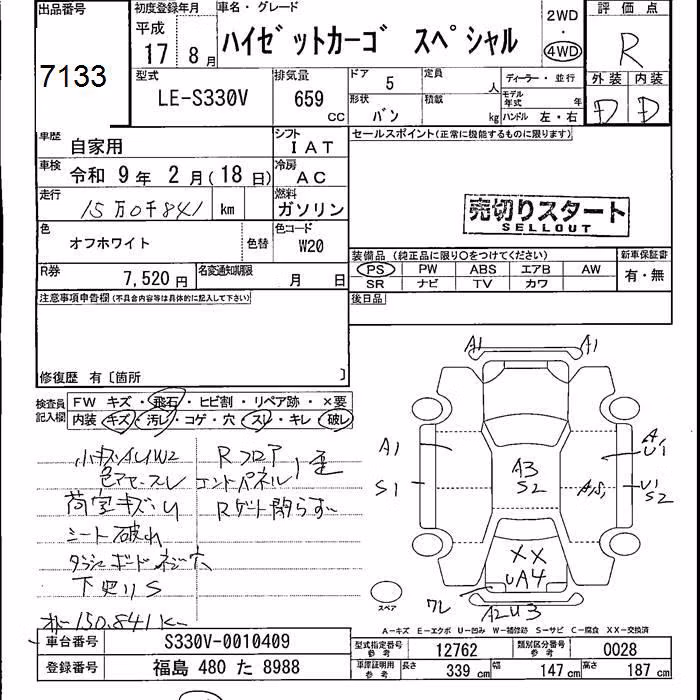 出品番号
7133
初度登録年月
平成
17 8月
車名・グレード
ハイゼットカーゴ スペシャル
2WD
・
4WD
評価点
R
外装 内装
D D
型式
LE-S330V
排気量
659 CC
ドア 5
定員 人
形状 バン
積載 kg
ディーラー・並行
モデル年式 年
ハンドル 左・右
車歴
自家用
シフト
IAT
セールスポイント(正常に機能するものに限ります)
車検
令和 9年 2月(18日)
冷房
AC
走行
15万0千841 km
燃料
ガソリン
売切りスタート
SELLOUT
色
オフホワイト
色替
色コード
W20
装備品(純正品に限り○をつけてください)
新車保証書
PS PW ABS エアB AW
有・無
SR ナビ TV カワ
R券
7,520円
名変通知期限
月 日
後日品
注意事項申告欄(不具合内容等は具体的に記入して下さい)
修復歴 有〔箇所 〕
検査員記入欄
FW キズ・飛石・ヒビ割・リペア跡・×要
内装 キズ・汚レ・コゲ・穴・スレ・キレ・破レ
小キズAUW2
色アセ・スレ
荷室キズ・U
シート破れ
ダッシュボードネジ穴
下廻りS
Rフロア
エンドパネル
Rゲート閉らず
オドー150.841K
A1 A1
A1
S1
A3
S2
A1
U1
A1S1
U1
S2
XX
UA4
ワレ
A2U3
スペア
A-キズ E-エクボ U-凹み W-補修跡 S-サビ C-腐食 XX-交換済
車台番号
S330V-0010409
登録番号
福島 480 た 8988
型式指定番号 参考
12762
類別区分番号 参考
0028
車庫証明用 参考
長さ 339 cm 幅 147 cm 高さ 187 cm